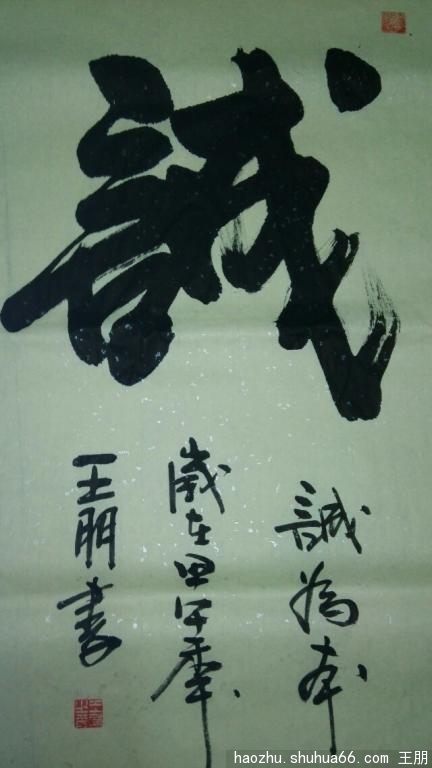 誠
誠為本
歲在甲午年
王朋書
haozhu.shuhua66.com 王朋